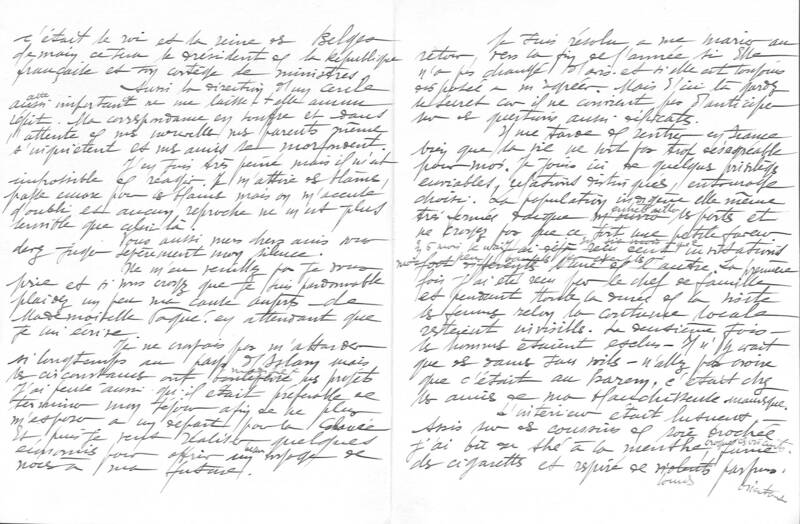 c'était le roi et la reine des Belges
demain ce sera le président de la République
française et son cortège de ministres.
Aussi la direction d'un cercle
aussi important ne me laisse-t-elle aucun
répit. Ma correspondance en souffre et dans
l'attente de mes nouvelles mes parents même
s'inquiètent et mes amis se morfondent.
J'en suis très peiné mais il m'est
impossible de réagir. Je m'attire des blâmes,
passe encore pour les blâmes mais on m'accuse
d'oubli et aucun reproche ne m'est plus
sensible que celui là.
Vous aussi, mes chers amis vous
devez juger sévèrement mon silence.
Ne m'en veuillez pas je vous
prie et si vous croyez que je suis pardonnable
plaidez un peu ma cause auprès de
Mademoiselle en attendant que
je lui écrive.
Je ne croyais pas m'attarder
si longtemps au pays d'Islam mais
les circonstances ont mes projets
J'ai pensé aussi qu'il était préférable de
terminer mon séjour afin de ne plus
m'exposer à un départ pour la
Et puis je veux réaliser quelques
économies pour offrir un beau voyage de
noces à ma future.
Je suis résolu à me marier au
retour, vers la fin de l'année si Elle
n'a pas changé d'avis et si elle est toujours
disposée à m'agréer. Mais d'ici là gardez
le secret car il ne convient pas d'anticiper
sur des questions aussi délicates.
Il me tarde de rentrer en France
bien que la vie ne soit pas trop désagréable
pour moi. Je jouis ici de quelques privilèges
enviables, relations distinguées, entourage
choisi. La population indigène elle même
très fermée m'ouvre ses portes et
ne croyez pas que ce soit une petite faveur
invitations
l'une de l'autre. La première
fois j'ai été reçu par le chef de famille
et pendant toute la durée de la visite
les femmes selon la coutume locale
restèrent invisibles. La deuxième fois
les hommes étaient exclus. Il n'y avait
que des dames sans voiles - n'allez pas croire
que c'était au harem, c'était chez
les amies de ma blanchisseuse mauresque.
L'intérieur était luxueux.
Assis sur des coussins de soie brochée
j'ai bu du thé à la menthe, fumé
des cigarettes et respiré de violents parfums
lourds